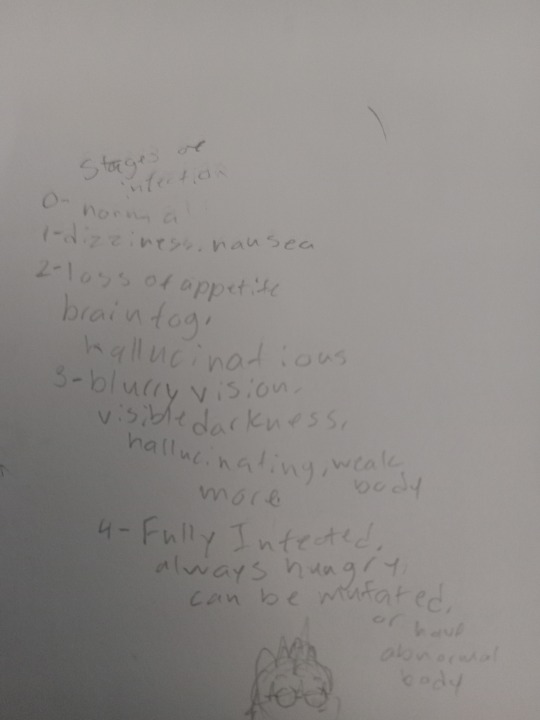 Stages of
infection
0- normal
1-dizziness, nausea
2-loss of appetite
brain fog,
hallucinations
3-blurry vision,
visible darkness,
hallucinating, weak
more body
4- Fully Infected,
always hungry,
can be mutated,
or have
abnormal
body